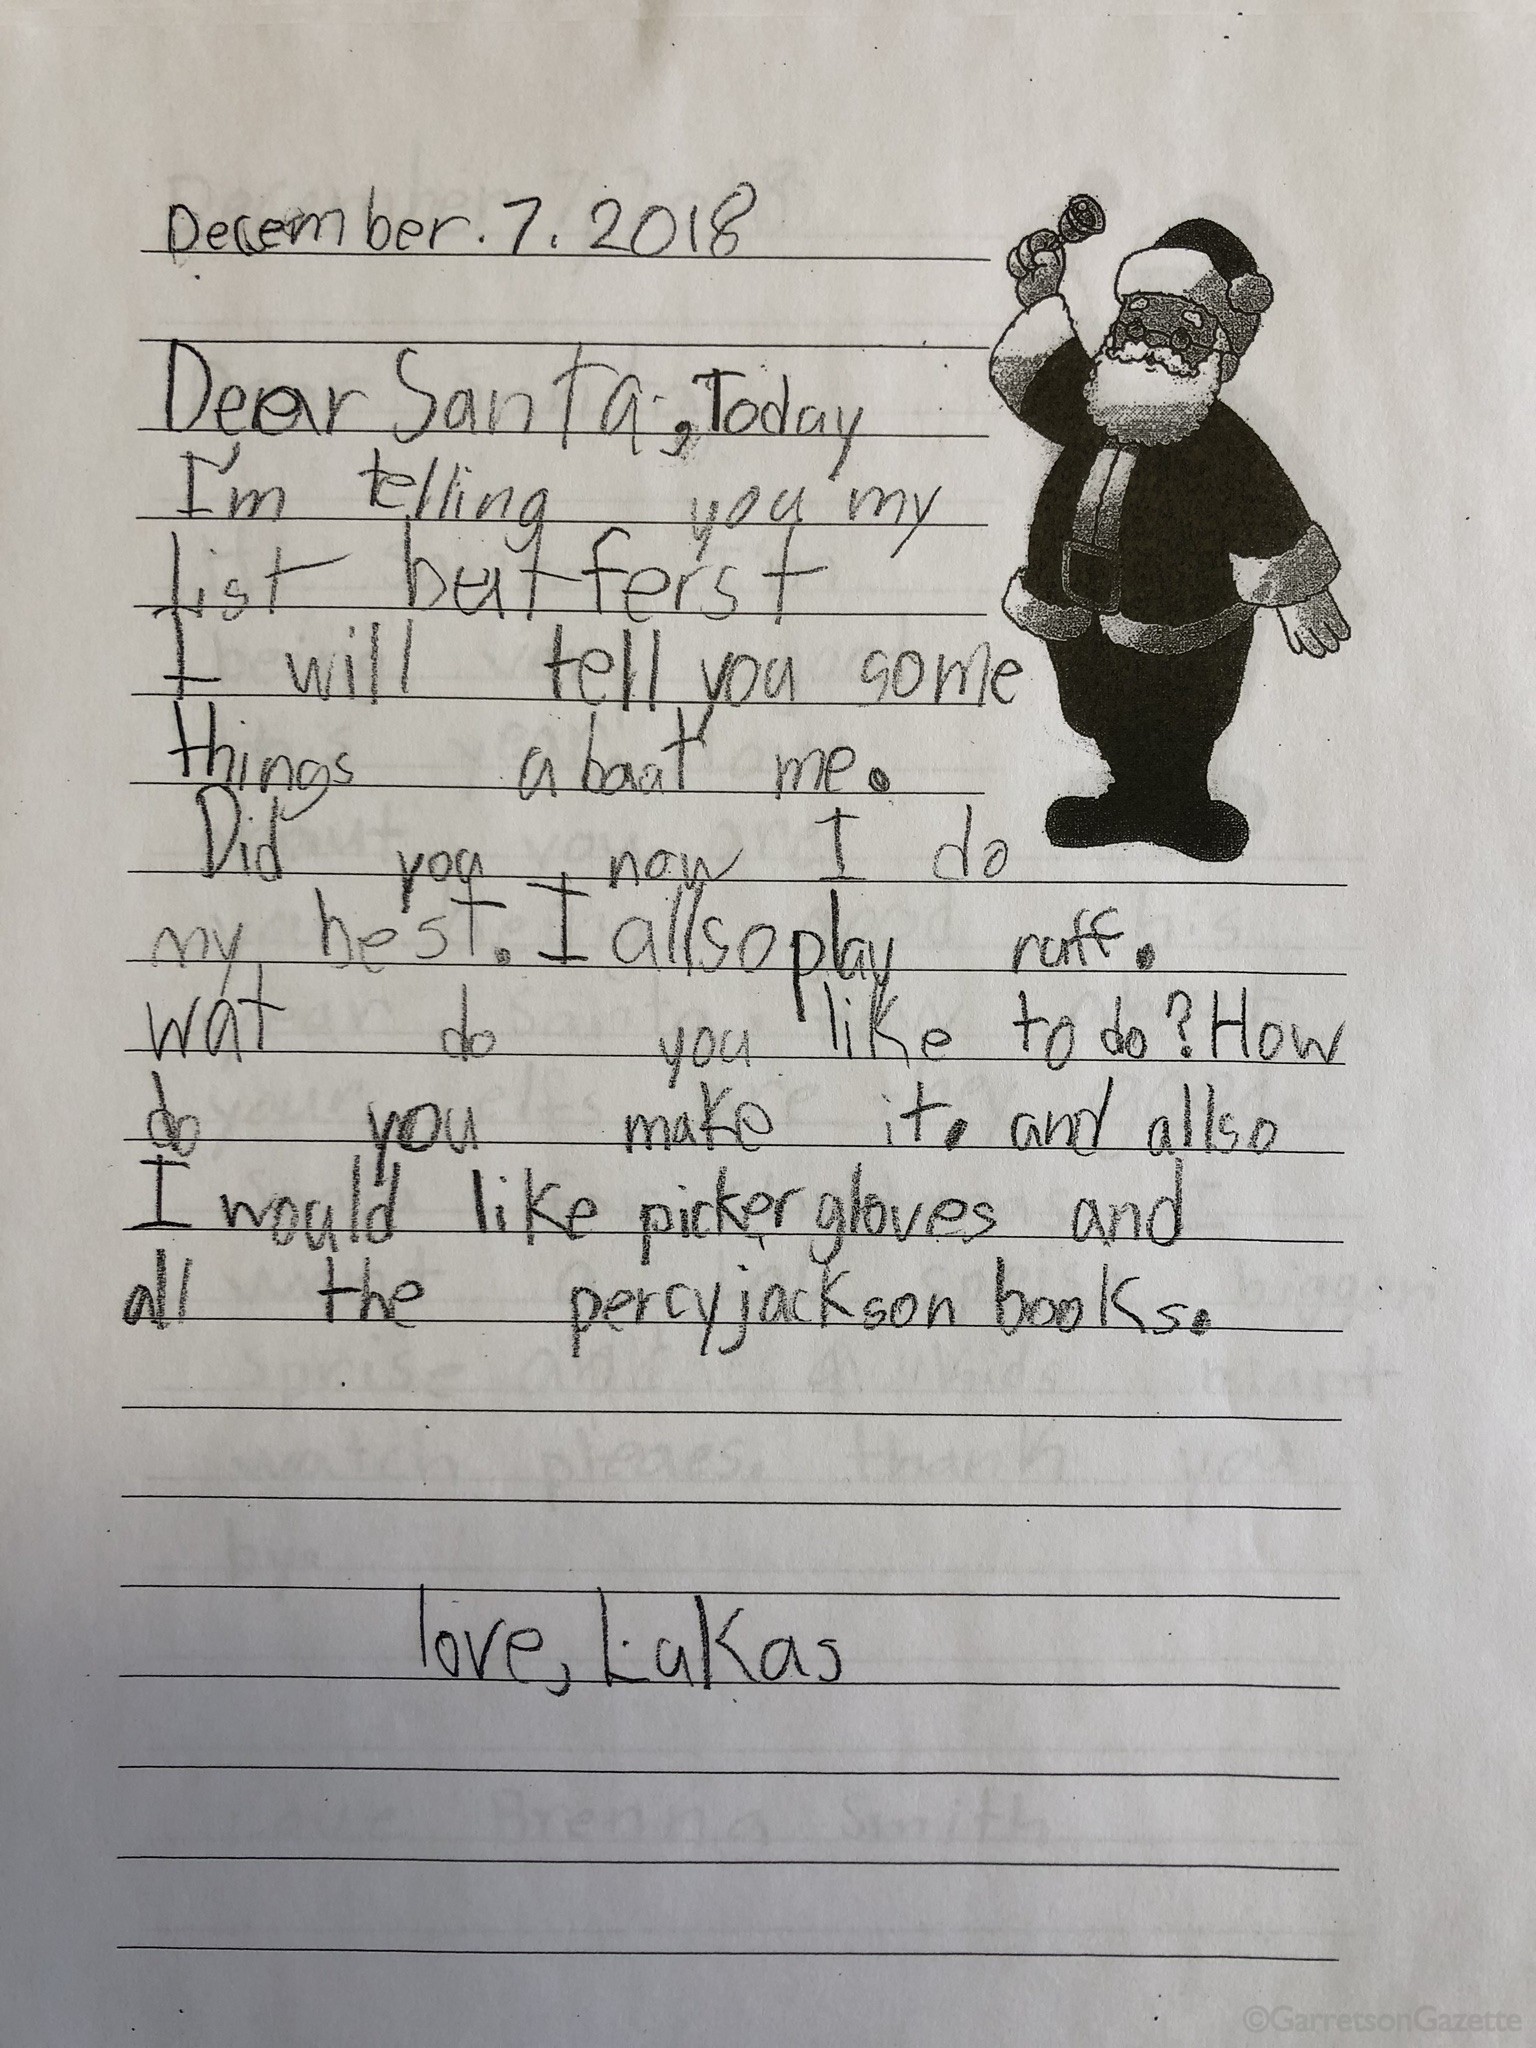 December. 7. 2018
Dear Santa, Today
I'm telling you my
list but ferst
I will tell you some
things abaat me.
Did you now I do
my best. I allso play ruff.
wat do you like to do? How
do you make it. and allso
I would like picker gloves and
all the percy jackson books.
love, Lukas
©GarretsonGazette